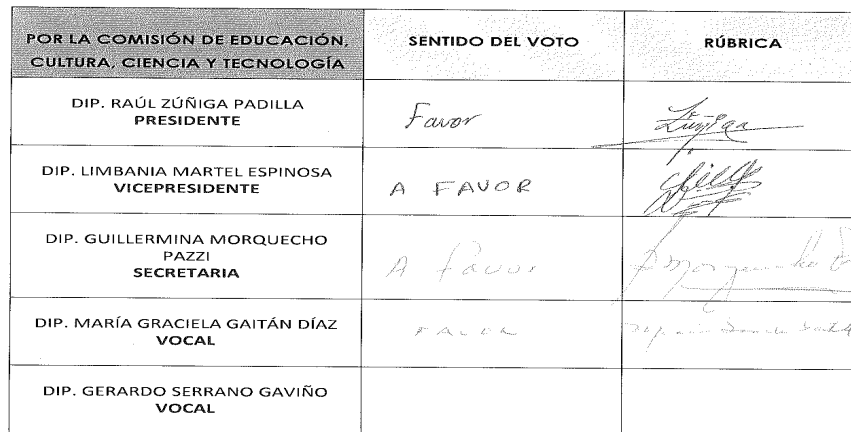 POR LA COMISIÓN DE EDUCACIÓN,
CULTURA, CIENCIA Y TECNOLOGÍA
SENTIDO DEL VOTO
RÚBRICA
DIP. RAÚL ZÚÑIGA PADILLA
PRESIDENTE
Favor
Zuñiga
DIP. LIMBANIA MARTEL ESPINOSA
VICEPRESIDENTE
A FAVOR
DIP. GUILLERMINA MORQUECHO
PAZZI
SECRETARIA
A favor
Morquecho P
DIP. MARÍA GRACIELA GAITÁN DÍAZ
VOCAL
FAVOR
DIP. GERARDO SERRANO GAVIÑO
VOCAL